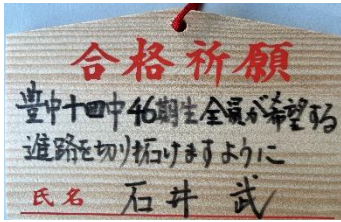 合格祈願
豊中十四中46期生全員が希望する
進路を切り拓けますように
氏名 石井 武